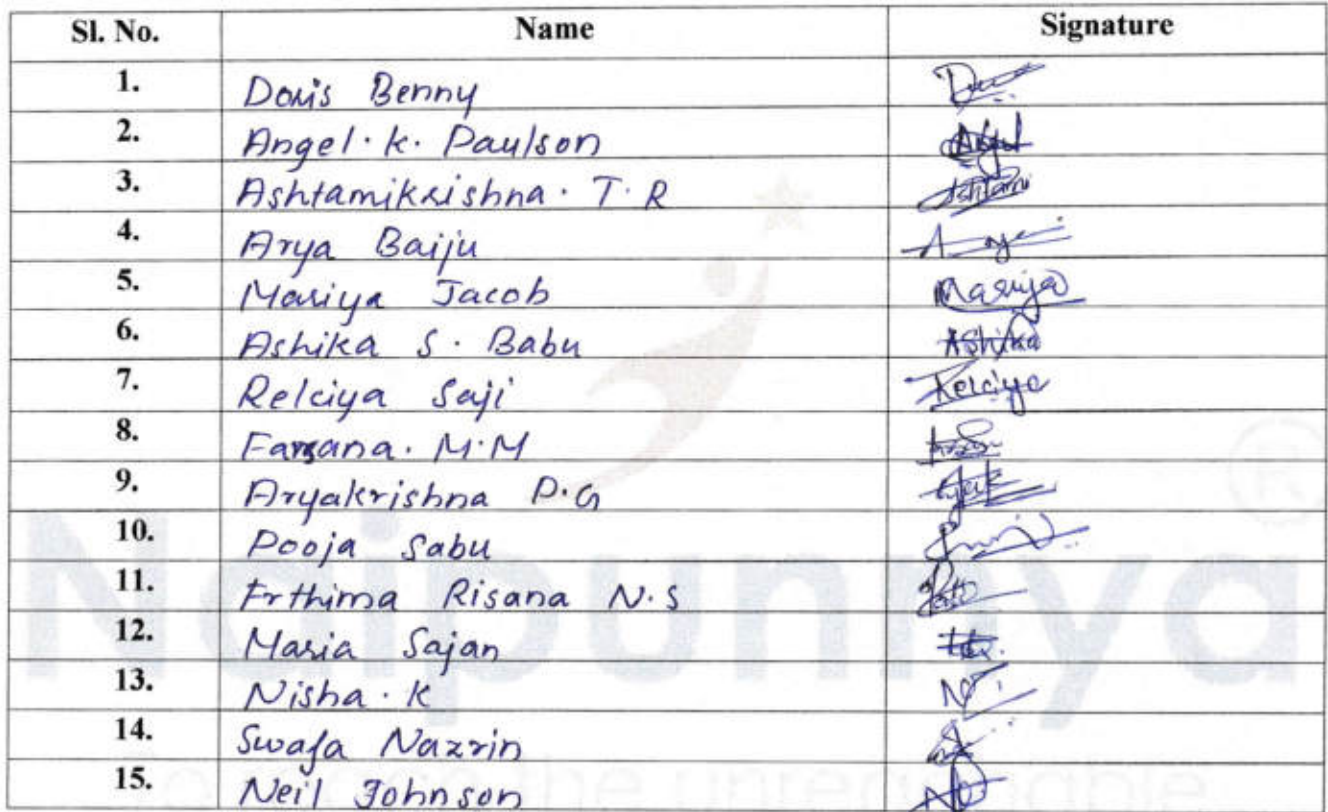 Sl. No. Name Signature
1. Doris Benny
2. Angel. K. Paulson Angel
3. Ashtamikrishna. T. R Ashtami
4. Arya Baiju
5. Mariya Jacob Mariya
6. Ashika S. Babu Ashika
7. Relciya Saji Relciya
8. Farsana. M. M
9. Aryakrishna P. G
10. Pooja Sabu
11. Frthima Risana N. S
12. Maria Sajan
13. Nisha. K
14. Swafa Nazrin
15. Neil Johnson
Naipunnya ®
the